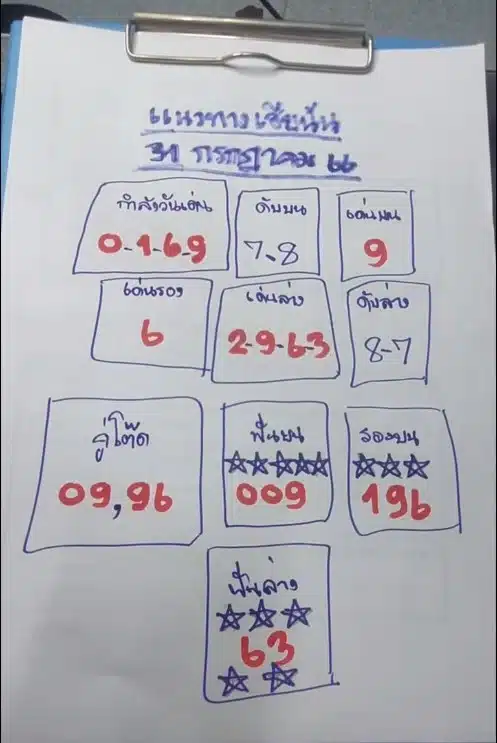 แนวทางเซียนัน
31 กรกฎาคม 66
กำลังวันเด่น
0-1-6-9
ดับบน
7-8
เด่นบน
9
เด่นรอง
6
เด่นล่าง
2-9-6-3
ดับล่าง
8-7
คู่โต๊ด
09,96
ฟันบน
009
รองบน
196
ฟันล่าง
63